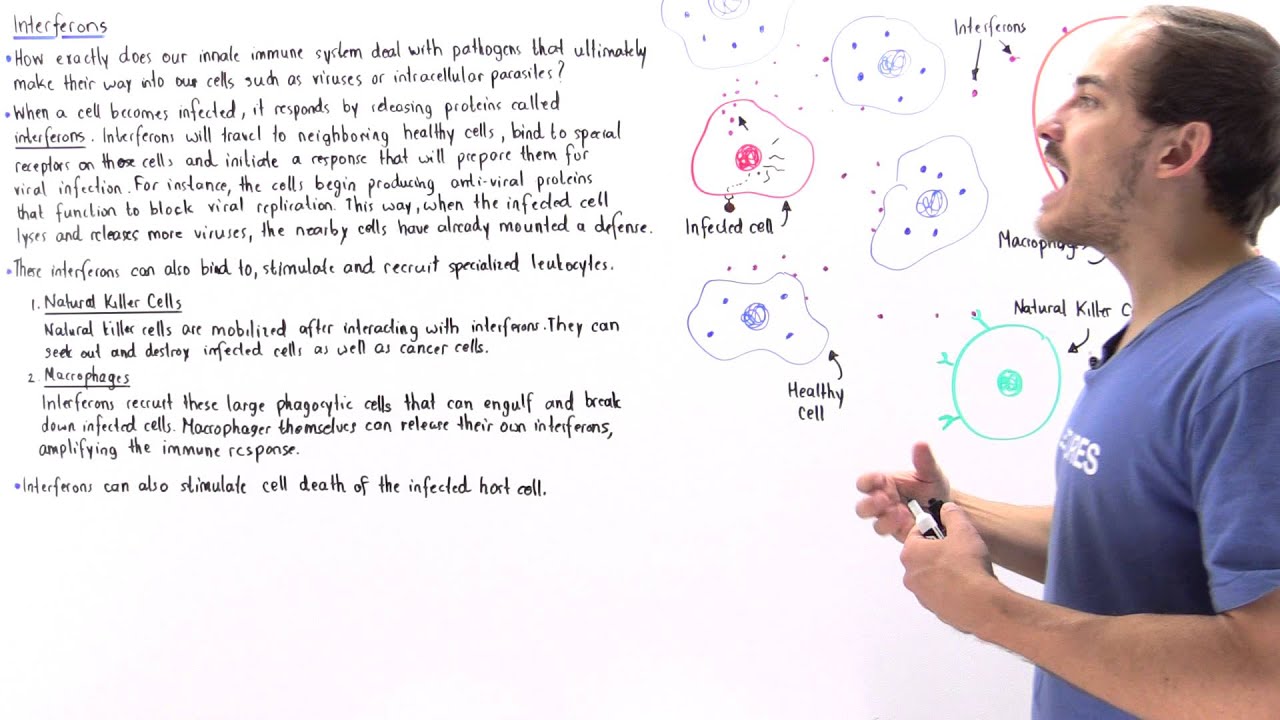 Interferons
•How exactly does our innate immune system deal with pathogens that ultimately
make their way into our cells such as viruses or intracellular parasites?
•When a cell becomes infected, it responds by releasing proteins called
interferons. Interferons will travel to neighboring healthy cells, bind to special
receptors on those cells and initiate a response that will prepare them for
viral infection. For instance, the cells begin producing anti-viral proteins
that function to block viral replication. This way, when the infected cell
lyses and releases more viruses, the nearby cells have already mounted a defense.
•These interferons can also bind to, stimulate and recruit specialized leukocytes.
1. Natural Killer Cells
Natural killer cells are mobilized after interacting with interferons. They can
seek out and destroy infected cells as well as cancer cells.
2. Macrophages
Interferons recruit these large phagocytic cells that can engulf and break
down infected cells. Macrophager themselves can release their own interferons,
amplifying the immune response.
•Interferons can also stimulate cell death of the infected host cell.
Interferons
Infected cell
Macrophages
Natural Killer C
Healthy
Cell